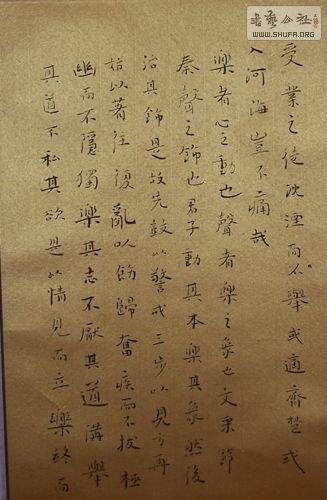 受業之徒沈湮而不舉或適齊楚或
入河海豈不痛哉
樂者心之動也聲者樂之象也文采節
奏聲之飾也君子動其本樂其象然後
治其飾是故先鼓以警戒三步以見方再
始以著往復亂以飭歸奮疾而不拔極
幽而不隱獨樂其志不厭其道備舉
其道不私其欲是以情見而立樂終而
WWW.SHUFA.ORG